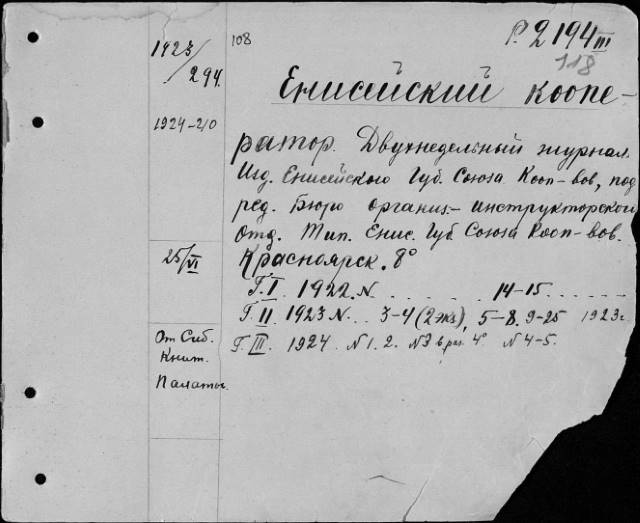 1923/294.
1924-210
25/VI
От Сиб.
Книж.
Палаты.
108
Р. 2194 III
118
Енисейский коопе-
ратор. Двухнедельный журнал.
Изд. Енисейского Губ. Союза Кооп-вов, под
ред. Бюро организ-инструкторского
Отд. Тип. Енис. Губ. Союза Кооп-вов.
Красноярск. 8°
Г. I. 1922. N . . . . . 14-15. . . . . .
Г. II. 1923 N... 3-4 (2 экз), 5-8. 9-25 1923 г
Г. III. 1924 N 1. 2. N 3 в раз. 4° N 4-5.